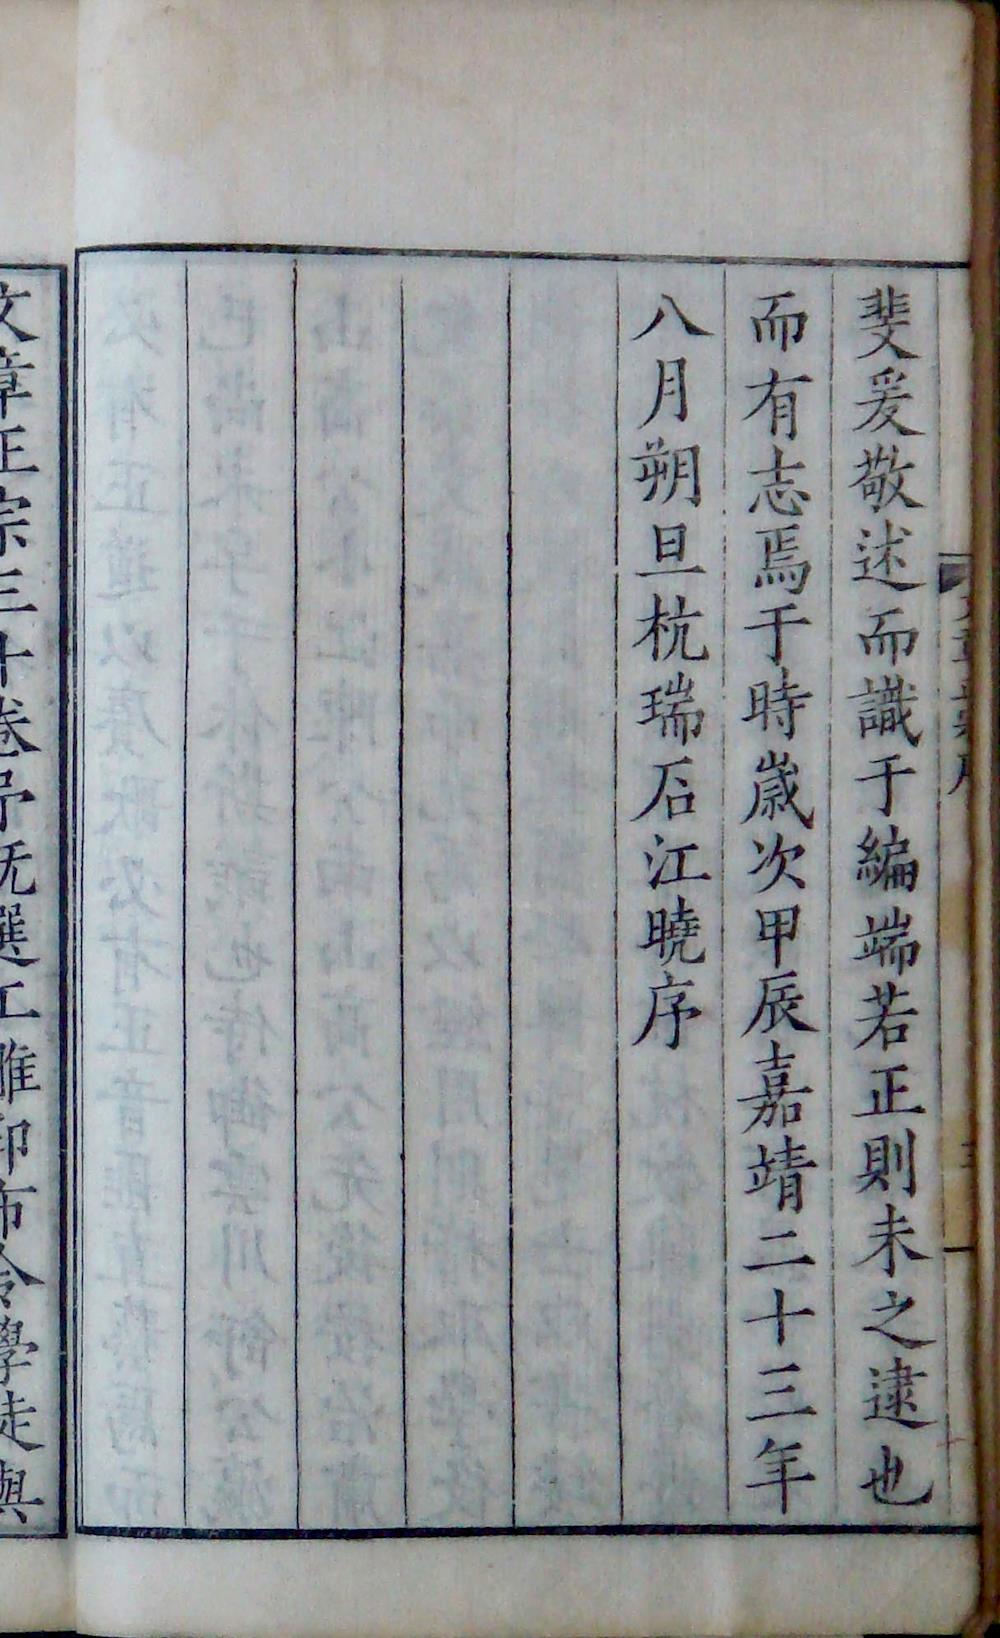 斐爰敬述而識于編端若正則未之逮也
而有志焉于時歲次甲辰嘉靖二十三年
八月朔旦杭瑞石江曉序
文章正宗三十卷予旣選工雕印布令學徒與